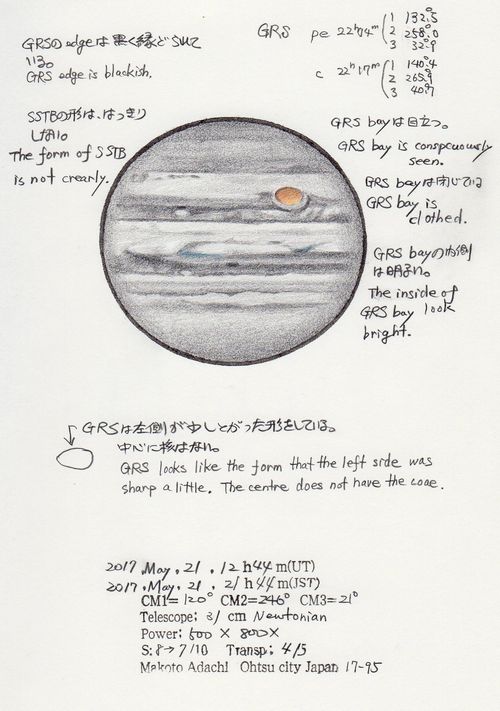 GRSのedgeは黒く縁どられて
いる。
GRS edge is blackish.
GRS pe 22h04m (1 132.°5
2 258.°0
3 32.°9
c 22h17m (1 140.°4
2 265.°9
3 40.°7
SSTBの形は、はっきり
しない。
The form of SSTB
is not crearly.
GRS bayは目立つ。
GRS bay is conspcuously
seen.
GRS bayは閉じている
GRS bay is
clothed.
GRS bayの内側
は明るい。
The inside of
GRS bay look
bright.
GRSは左側が少しとがった形をしている。
中心に核はない。
GRS looks like the form that the left side was
sharp a little. The centre does not have the
2017. May. 21. 12 h44 m(UT)
2017. May. 21. 21 h44 m(JST)
CM1= 120° CM2=246° CM3=21°
Telescope: 31 cm Newtonian
Power: 600 × 800×
S: 8→7/10 Transp: 4/5
Makoto Adachi Ohtsu city Japan 17-95